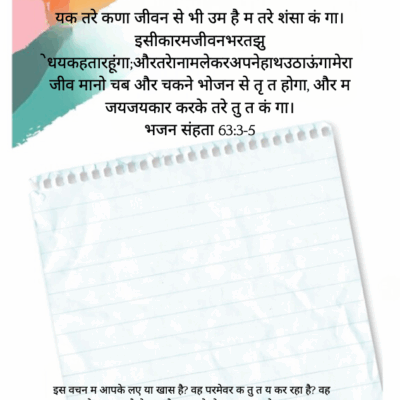 यक तरे कणा जीवन से भी उम है म तरे शंसा कं गा।
इसीकारमजीवनभरतझु
ेधयकहतारहूंगा;औरतरेानामलेकरअपनेहाथउठाऊंगामेरा
जीव मानो चब और चकने भोजन से तृ त होगा, और म
जयजयकार करके तरे तु त कं गा।
भजन संहता 63:3-5
इस वचन म आपके लए या खास है? वह परमेवर क तु त य कर रहा है? वह